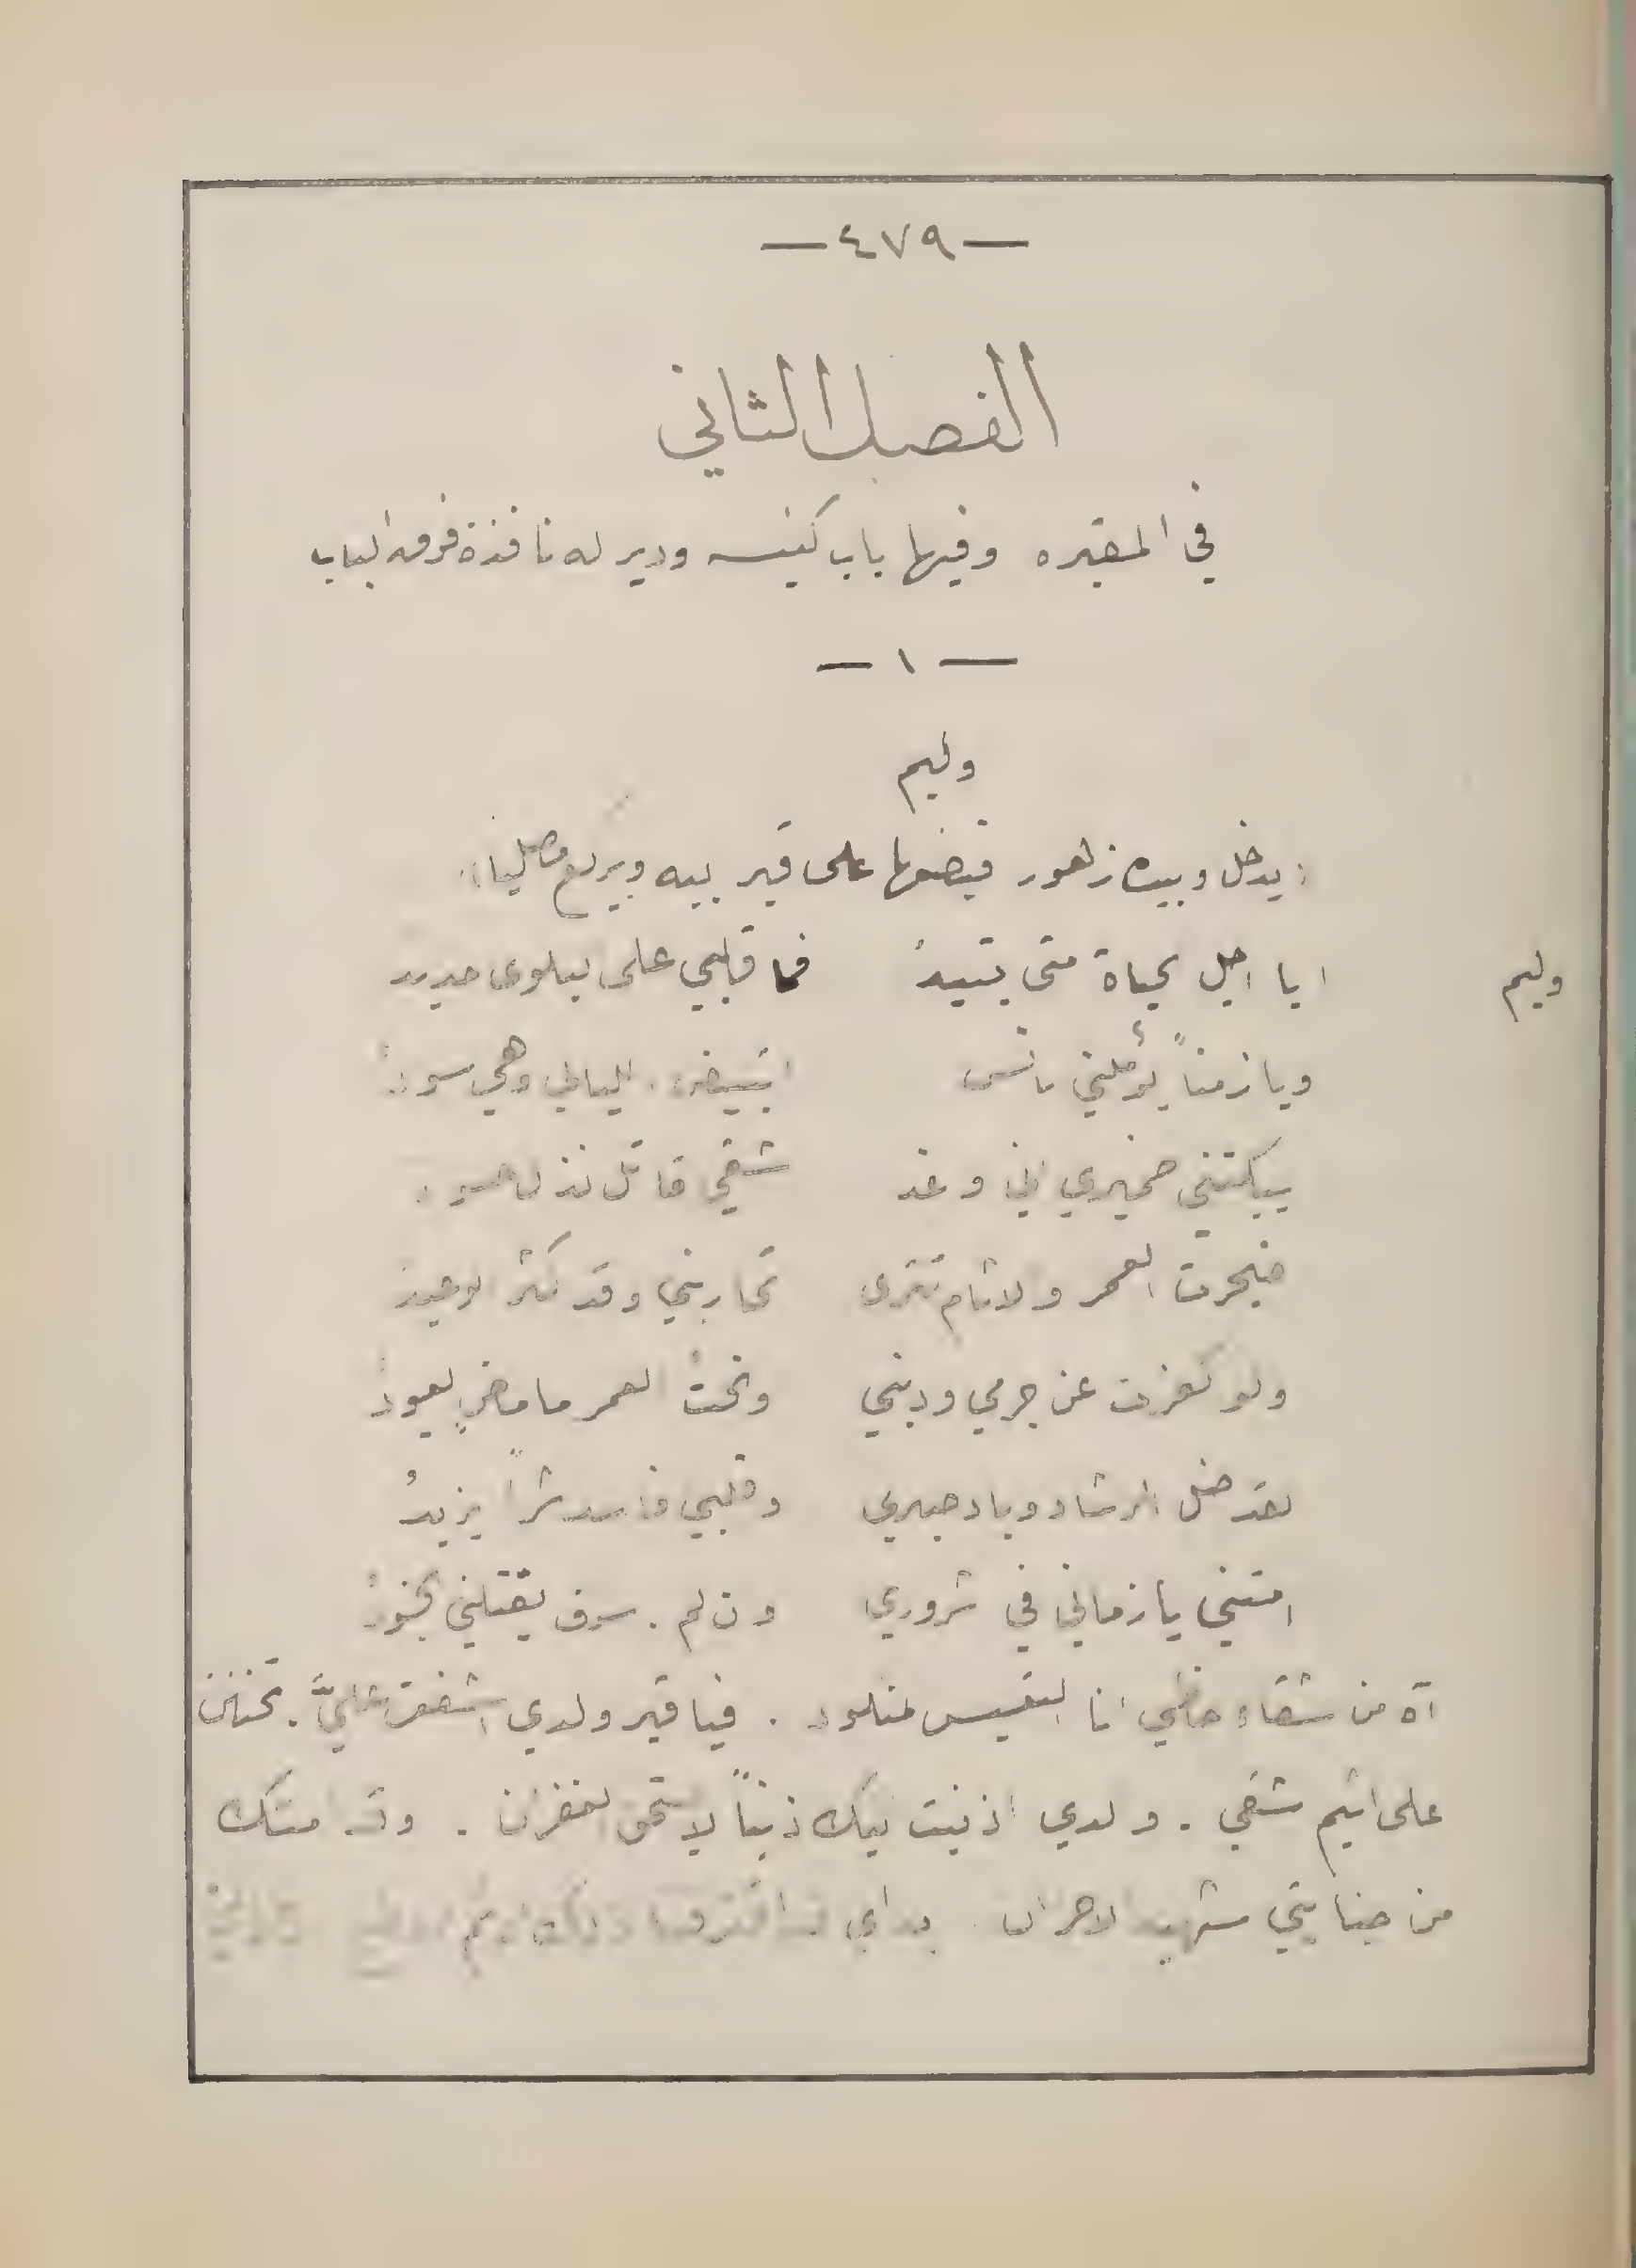 — ٤٧٩ —
الفصل الثاني
في المقبره وفيها باب كنيسه ودير له نافذة فوق الباب
— ١ —
وليم
(يدخل وبيده زهور فيضعها على قبر ابيه ويركع مصلياً)
وليم ايا اجل الحياة متى تبيدُ فما قلبي على البلوى حديد
ويا زمناً يؤملني بانس اتبيض الليالي وهي سودُ
يبكتني ضميري اني وغد شقي قاتل نذل حسود
ضجرت العمر والاثام تترى تحاربني وقد كثر
ولو كفرت عن جرمي وذنبي ونحتُ العمر ما ماضٍ يعودُ
لقد ضل الرشاد وباد صبري وقلبي فاسد شراً يزيدُ
امتني يا زماني في شروري وان لم . سوف يقتلني
آه من شقاء حظي انا التعيس المنكود . فيا قبر والدي اشفق عليَّ . تحنن
على اثيم شقي . والدي اذنبت اليك ذنباً لا يستحق الغفران . وقد امتك
من جنايتي شهيد الاحزان